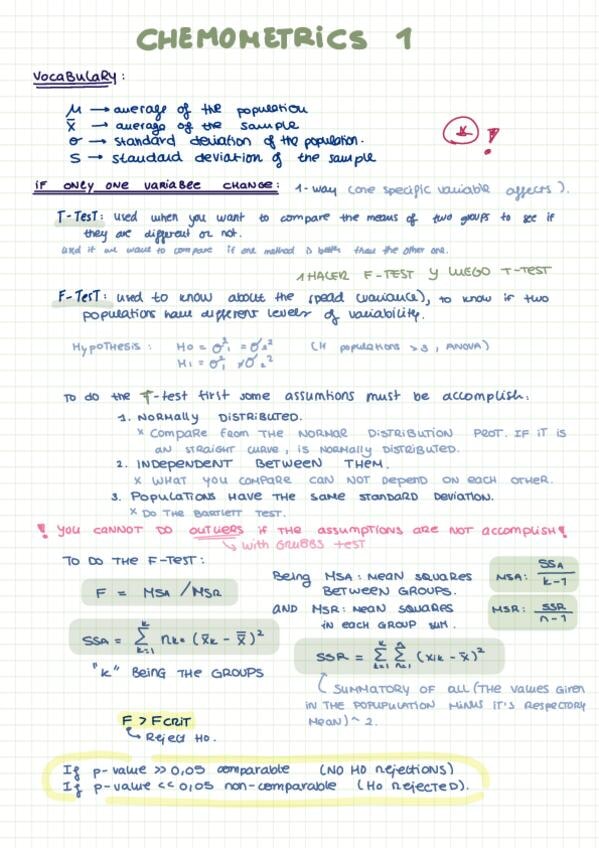 CHEMOMETRICS 1
VOCABULARY:
μ → average of the population
x̄ → average of the sample
σ → standard deviation of the population.
S → standard deviation of the sample
IF ONLY ONE VARIABLE CHANGE: 1-way (one specific variable affects).
T-TEST: used when you want to compare the means of two groups to see if
they are different or not.
used if we want to compare if one method is better than the other one.
1 HACER F-TEST Y LUEGO T-TEST
F-TEST: used to know about the spead (variance), to know if two
populations have different levels of variability.
HYPOTHESIS: H0 = σ²₁ = σ₂²
(if populations > 3, ANOVA)
H1 = σ²₁ ≠ σ₂²
To do the T-test first some assumtions must be accomplish:
1. NORMALLY DISTRIBUTED.
* COMPARE FROM THE NORMAL DISTRIBUTION PLOT. IF IT IS
AN STRAIGHT CURVE, IS NORMALLY DISTRIBUTED.
2. INDEPENDENT BETWEEN THEM.
* WHAT YOU COMPARE CAN NOT DEPEND ON EACH OTHER.
3. POPULATIONS HAVE THE SAME STANDARD DEVIATION.
* DO THE BARTLETT TEST.
! YOU CANNOT DO OUTLIERS IF THE ASSUMPTIONS ARE NOT ACCOMPLISH!
↳ with GRUBBS TEST
TO DO THE F-TEST:
F = MSA / MSR
Being MSA: MEAN SQUARES
BETWEEN GROUPS.
AND MSR: MEAN SQUARES
IN EACH GROUP SUM.
MSA: SSA / k-1
MSR: SSR / n-1
SSA = Σ k=1 k nk · (x̄k - x̄)²
"K" BEING THE GROUPS
SSR = Σ k=1 k Σ i=1 n (xik - x̄)²
SUMMATORY OF ALL (THE VALUES GIVEN
IN THE POPUPULATION MINUS IT'S RESPECTORY
MEAN)^2.
F > FCRIT
↳ Reject H0.
If p-value >> 0,05 comparable (NO H0 REJECTIONS)
If p-value << 0,05 non-comparable (H0 REJECTED).